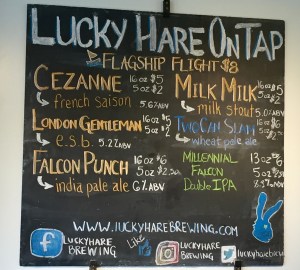 LUCKY HARE ON TAP
FLAGSHIP FLIGHT $8
CEZANNE 16oz $5
5oz $2
french saison 5.6% ABV
LONDON GENTLEMAN 16oz $5
5oz $2
e.s.b. 5.2% ABV
FALCON PUNCH 16oz $6
5oz
india pale ale 6% ABV
MILK MILK 16oz $5
5oz $2
milk stout 5.0% ABV
TWO CAN SLAM 16oz
5oz $2
wheat pale ale
MILLENNIAL 13oz
FALCON 5oz
Double IPA
WWW.LUCKYHAREBREWING.COM
f LUCKYHARE
BREWING
Like
LUCKYHARE
BREWING
luckyharebrew